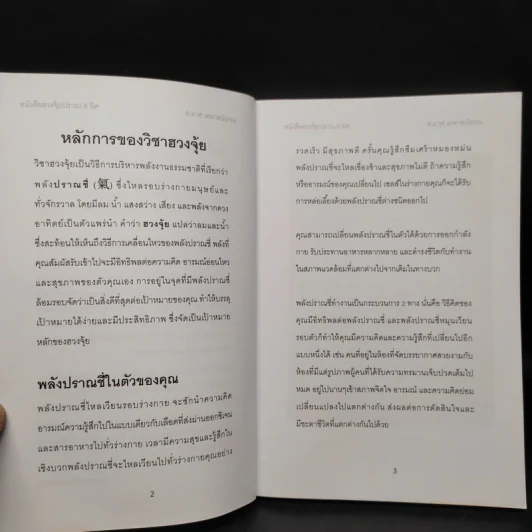 หนังสือฮวงจุ้ยปราณ 8 ทิศ
หลักการของวิชาฮวงจุ้ย
วิชาฮวงจุ้ยเป็นวิธีการบริหารพลังงานธรรมชาติที่เรียกว่า
พลังปราณชี่ (氣) ซึ่งไหลรอบร่างกายมนุษย์และ
ทั่วจักรวาล โดยมีลม น้ำ แสงสว่าง เสียง และพลังจากดวง
อาทิตย์เป็นตัวแพร่นำ คำว่า ฮวงจุ้ย แปลว่าลมและน้ำ
ซึ่งสะท้อนให้เห็นถึงวิธีการเคลื่อนไหวของพลังปราณชี่ พลังที่
คุณสัมผัสรับเข้าไปจะมีอิทธิพลต่อความคิด อารมณ์อ่อนไหว
และสุขภาพของตัวคุณเอง การอยู่ในจุดที่มีพลังปราณชี่
ล้อมรอบจัดว่าเป็นสิ่งดีที่สุดต่อเป้าหมายของคุณ ทำให้บรรลุ
เป้าหมายได้ง่ายและมีประสิทธิภาพ ซึ่งจัดเป็นเป้าหมาย
หลักของฮวงจุ้ย
พลังปราณชี่ในตัวของคุณ
พลังปราณชี่ไหลเวียนรอบร่างกาย จะชักนำความคิด
อารมณ์ความรู้สึกไปในแบบเดียวกับเลือดที่ส่งผ่านออกซิเจน
และสารอาหารไปทั่วร่างกาย เวลามีความสุขและรู้สึกใน
เชิงบวกพลังปราณชี่จะไหลเวียนไปทั่วร่างกายคุณอย่าง
2
หนังสือฮวงจุ้ยปราณ 8 ทิศ
รวดเร็ว มีสุขภาพดี ครั้นคุณรู้สึกซึมเศร้าหมองหม่น
พลังปราณชี่จะไหลเชื่องช้าและสุขภาพไม่ดี ถ้าความรู้สึก
หรืออารมณ์ของคุณเปลี่ยนไป เซลส์ในร่างกายคุณก็จะได้รับ
การหล่อเลี้ยงด้วยพลังปราณชี่ต่างชนิดออกไป
คุณสามารถเปลี่ยนพลังปราณชี่ในตัวได้ด้วยการออกกำลัง
กาย รับประทานอาหารหลากหลาย และดำรงชีวิตกับทำงาน
ในสภาพแวดล้อมที่แตกต่างไปจากเดิมในทางบวก
พลังปราณชี่ทำงานเป็นกระบวนการ 2 ทาง นั่นคือ วิธีคิดของ
คุณมีอิทธิพลต่อพลังปราณชี่ และพลังปราณชี่หมุนเวียน
รอบตัวก็ทำให้คุณมีความคิดและความรู้สึกที่เปลี่ยนไปอีก
แบบหนึ่งได้ เช่น คนที่อยู่ในห้องที่จัดบรรยากาศสวยงามกับ
ห้องที่มีแต่รูปภาพผู้คนที่ได้รับความทรมานเจ็บปวดเต็มไป
หมด อยู่ไปนานๆเข้าสภาพจิตใจ อารมณ์ และความคิดย่อม
เปลี่ยนแปลงไปแตกต่างกัน ส่งผลต่อการตัดสินใจและ
มีชะตาชีวิตที่แตกต่างกันไปด้วย
3